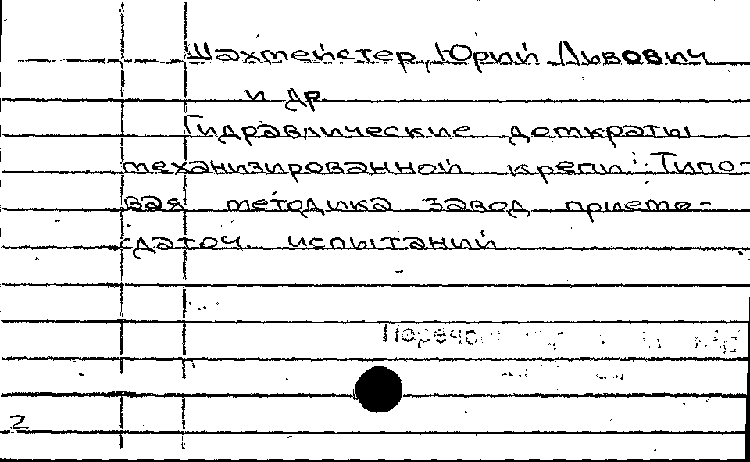 Шахтмейстер, Юрий Львович
и др.
Гидравлические домкраты
механизированной крепи: Типо-
вая методика завод. приемо-
-даточ. испытаний
2